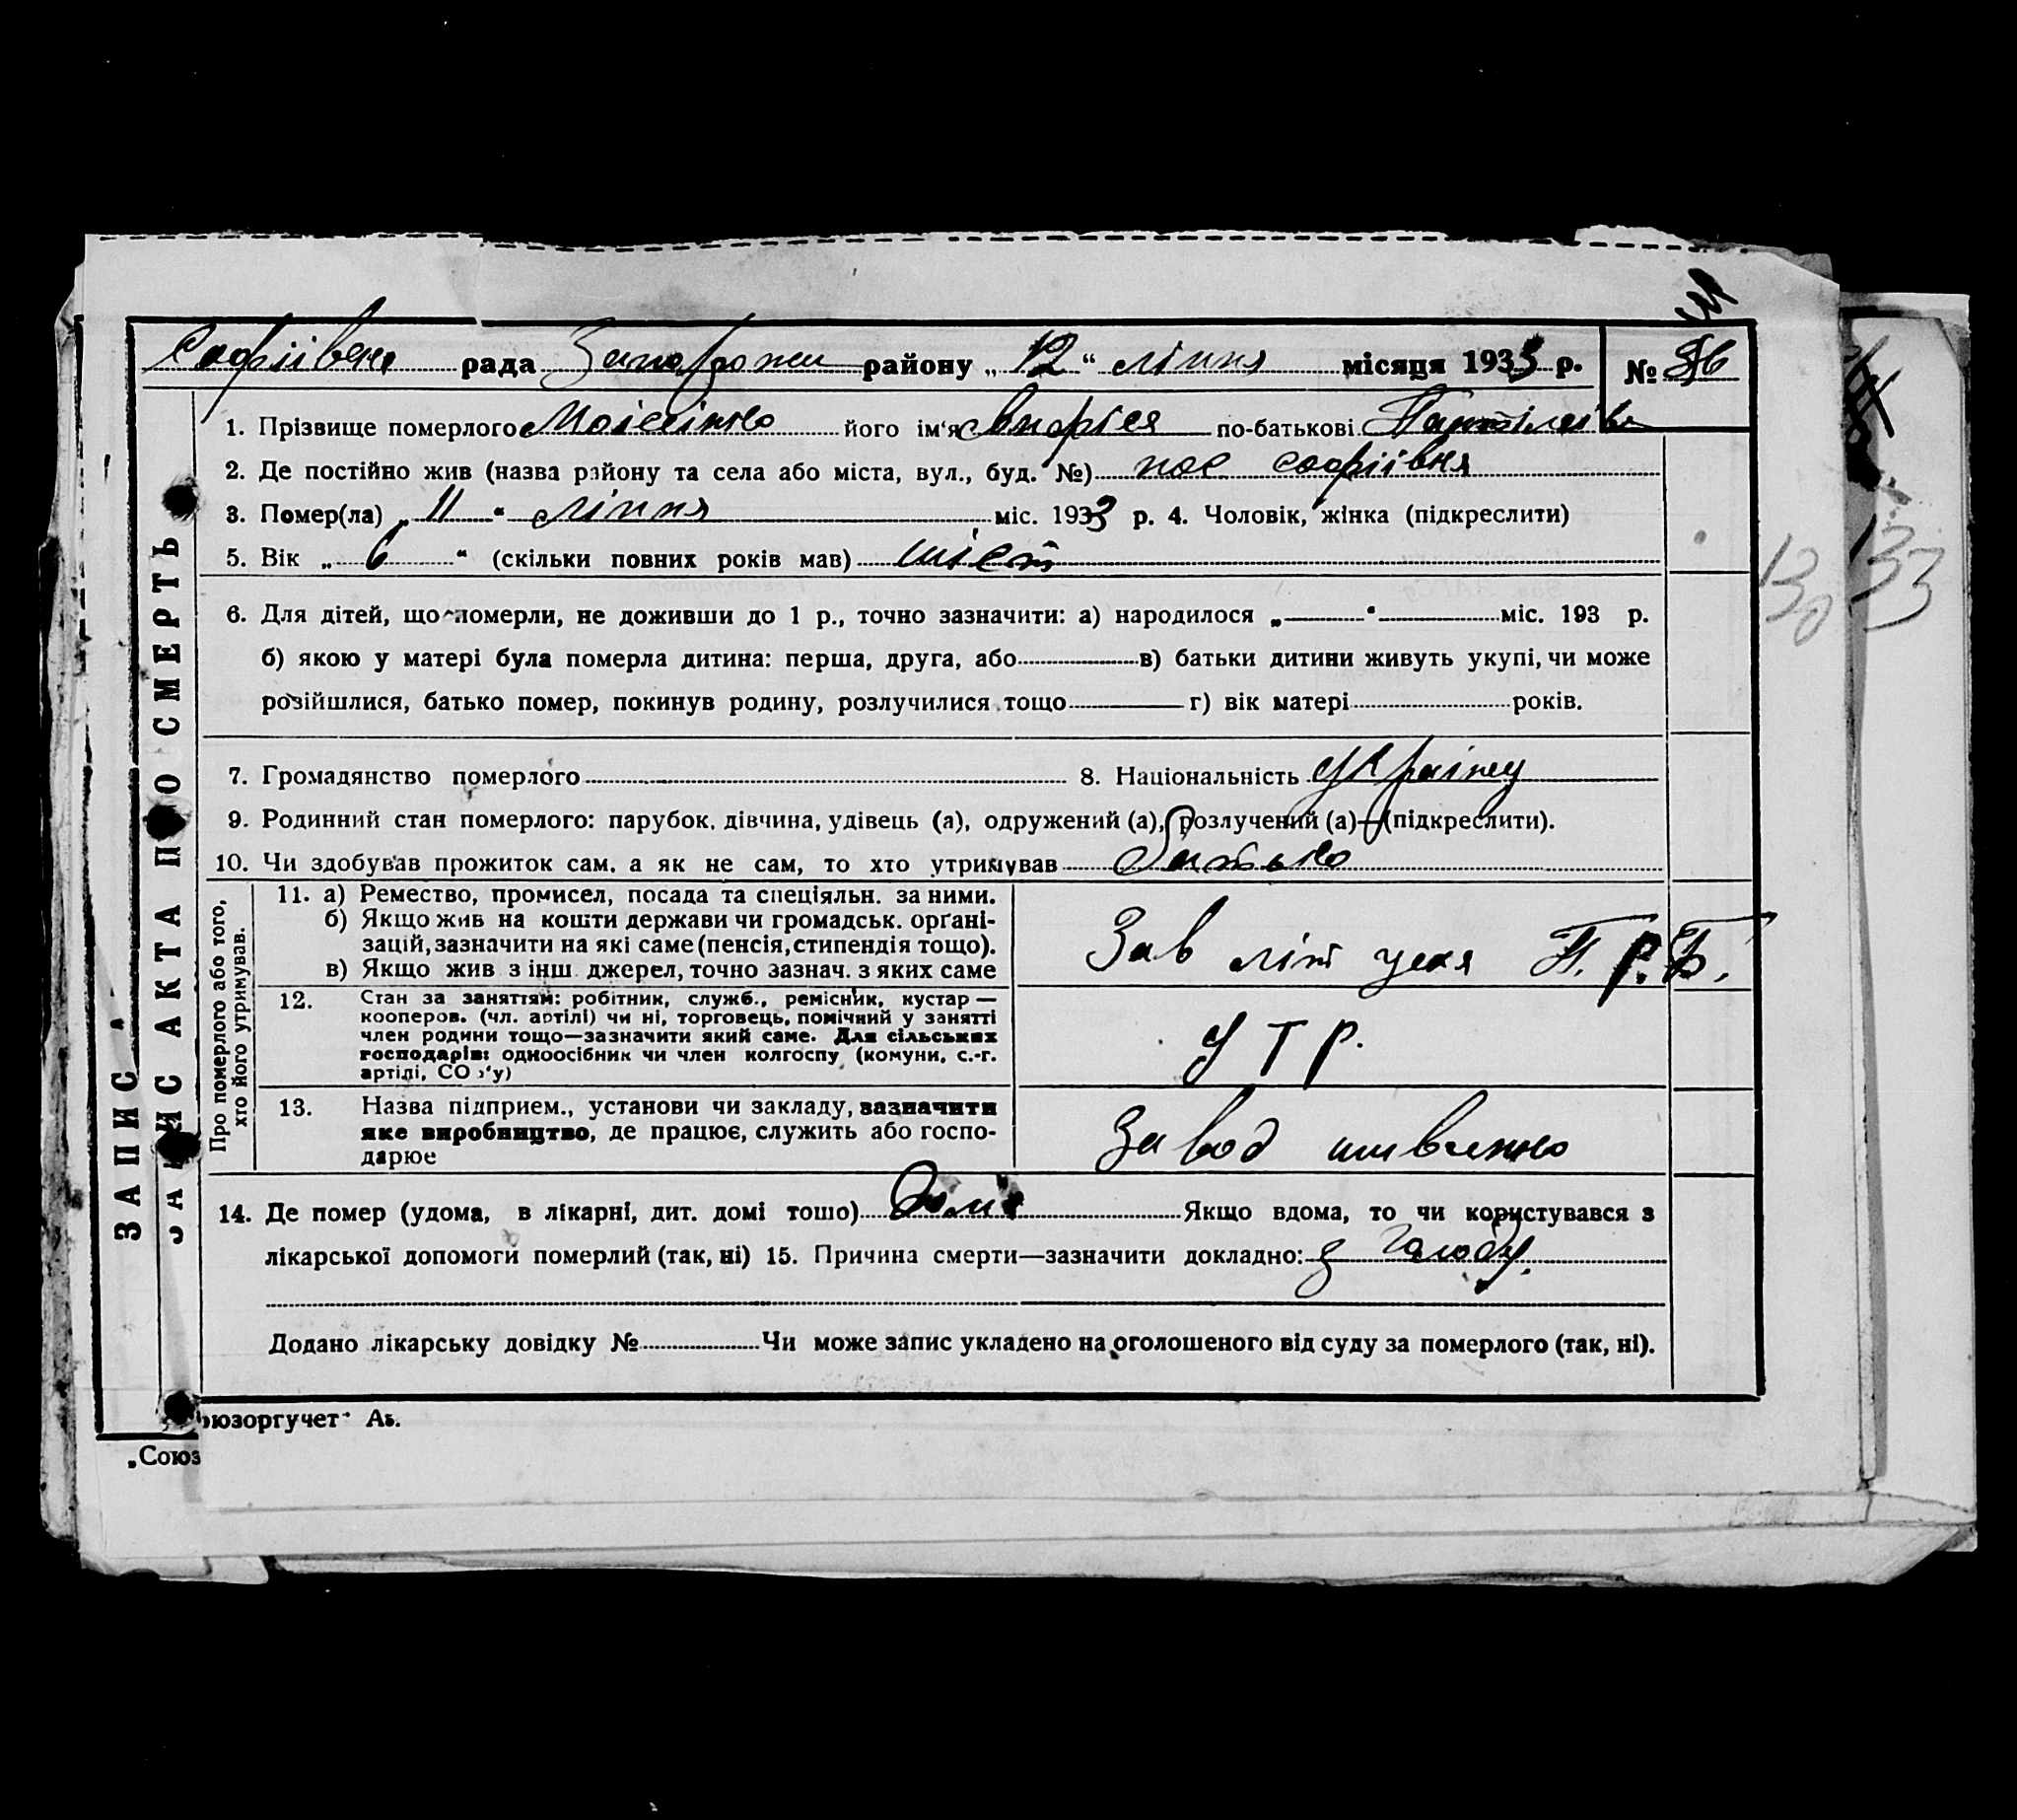 Софіївська рада Запоріжжя району „12“ ліпня місяця 1933 р. №
1. Прізвище померлого Моісеінко його ім'я по-батькові
2. Де постійно жив (назва району та села або міста, вул., буд. №) пос. софіівка
3. Помер(ла) „11“ ліпня міс. 1933 р. 4. Чоловік, жінка (підкреслити)
5. Вік „6“ (скільки повних років мав) шіст
6. Для дітей, що померли, не доживши до 1 р., точно зазначити: а) народилося „ “ міс. 193 р.
б) якою у матері була померла дитина: перша, друга, або в) батьки дитини живуть укупі, чи може
розійшлися, батько помер, покинув родину, розлучилися тощо г) вік матері років.
7. Громадянство померлого 8. Національність
9. Родинний стан померлого: парубок, дівчина, удівець (а), одружений (а), розлучений (а)—(підкреслити).
10. Чи здобував прожиток сам, а як не сам, то хто утримував батько
Про померлого або того,
хто його утримував.
11. а) Ремество, промисел, посада та спеціяльн. за ними.
б) Якщо жив на кошти держави чи громадськ. орґані-
зацій, зазначити на які саме (пенсія, стипендія тощо).
в) Якщо жив з інш. джерел, точно зазнач. з яких саме
Зав літ цехя П. Р. Б.
12. Стан за заняттям: робітник, служб., ремісник, кустар—
кооперов. (чл. артілі) чи ні, торговець, помічний у занятті
член родини тощо—зазначити який саме. Для сільських
господарів: одноосібник чи член колгоспу, (комуни, с.-г.
артілі, СО у)
У Т Р.
13. Назва підприєм., установи чи закладу, зазначити
яке виробництво, де працює, служить або госпо-
дарює
Завод
14. Де помер (удома, в лікарні, дит. домі тощо) Якщо вдома, то чи користувався з
лікарської допомоги померлий (так, ні) 15. Причина смерти—зазначити докладно: з голоду.
Додано лікарську довідку № Чи може запис укладено на оголошеного від суду за померлого (так, ні).
юзоргучет“
„Союз
ЗАПИС А
ЗАПИС АКТА ПРО СМЕРТЬ
130
133